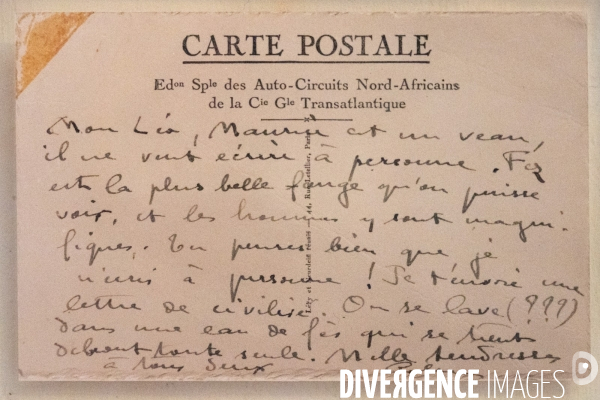 CARTE POSTALE
Edon Sple des Auto-Circuits Nord-Africains
de la Cie Gle Transatlantique
Mon Léo, Maurice est un veau,
il ne veut écrire à personne. Fez
est la plus belle fange qu'on puisse
voir, et les hommes y sont magni-
fiques. Tu penses bien que je
n'écris à personne ! Je t'envoie une
lettre de civilisé. On se lave (???)
dans une eau de fès qui se tient
debout toute seule. Mille tendresses
à tous deux
Lévy et Neurdein réunis — 44, Rue Letellier, Paris
DIVERGENCEIMAGES